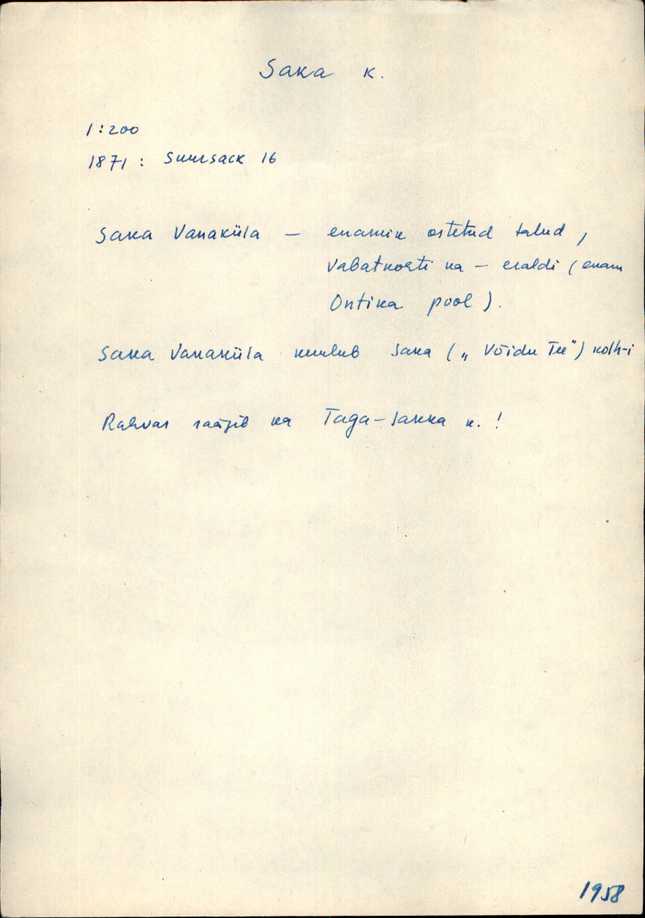 Saka k.
1:200
1871: Suursack 16
Saka Vanaküla – enamik ostetud talud,
Vabatkohti ka – eraldi (enam
Ontika pool).
Saka Vanaküla kuulub Saka („Võidu Tee") kolh-i
Rahvas räägib ka Taga-Sakka k.!
1958